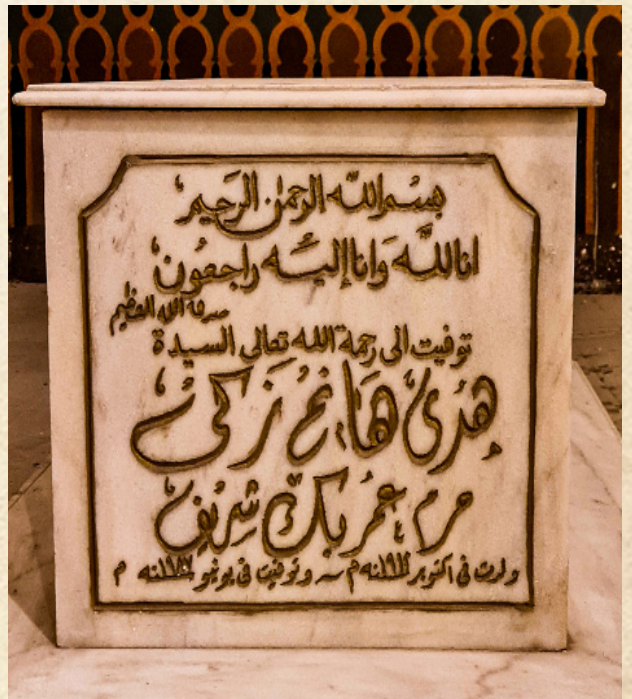 بسم الله الرحمن الرحيم
انا لله وانا اليه راجعون
صدق الله العظيم
توفيت الى رحمة الله تعالى السيدة
هدى هانم زكى
حرم عمر بك شريف
ولدت فى اكتوبر سنة م وتوفيت فى يونيو سنة م